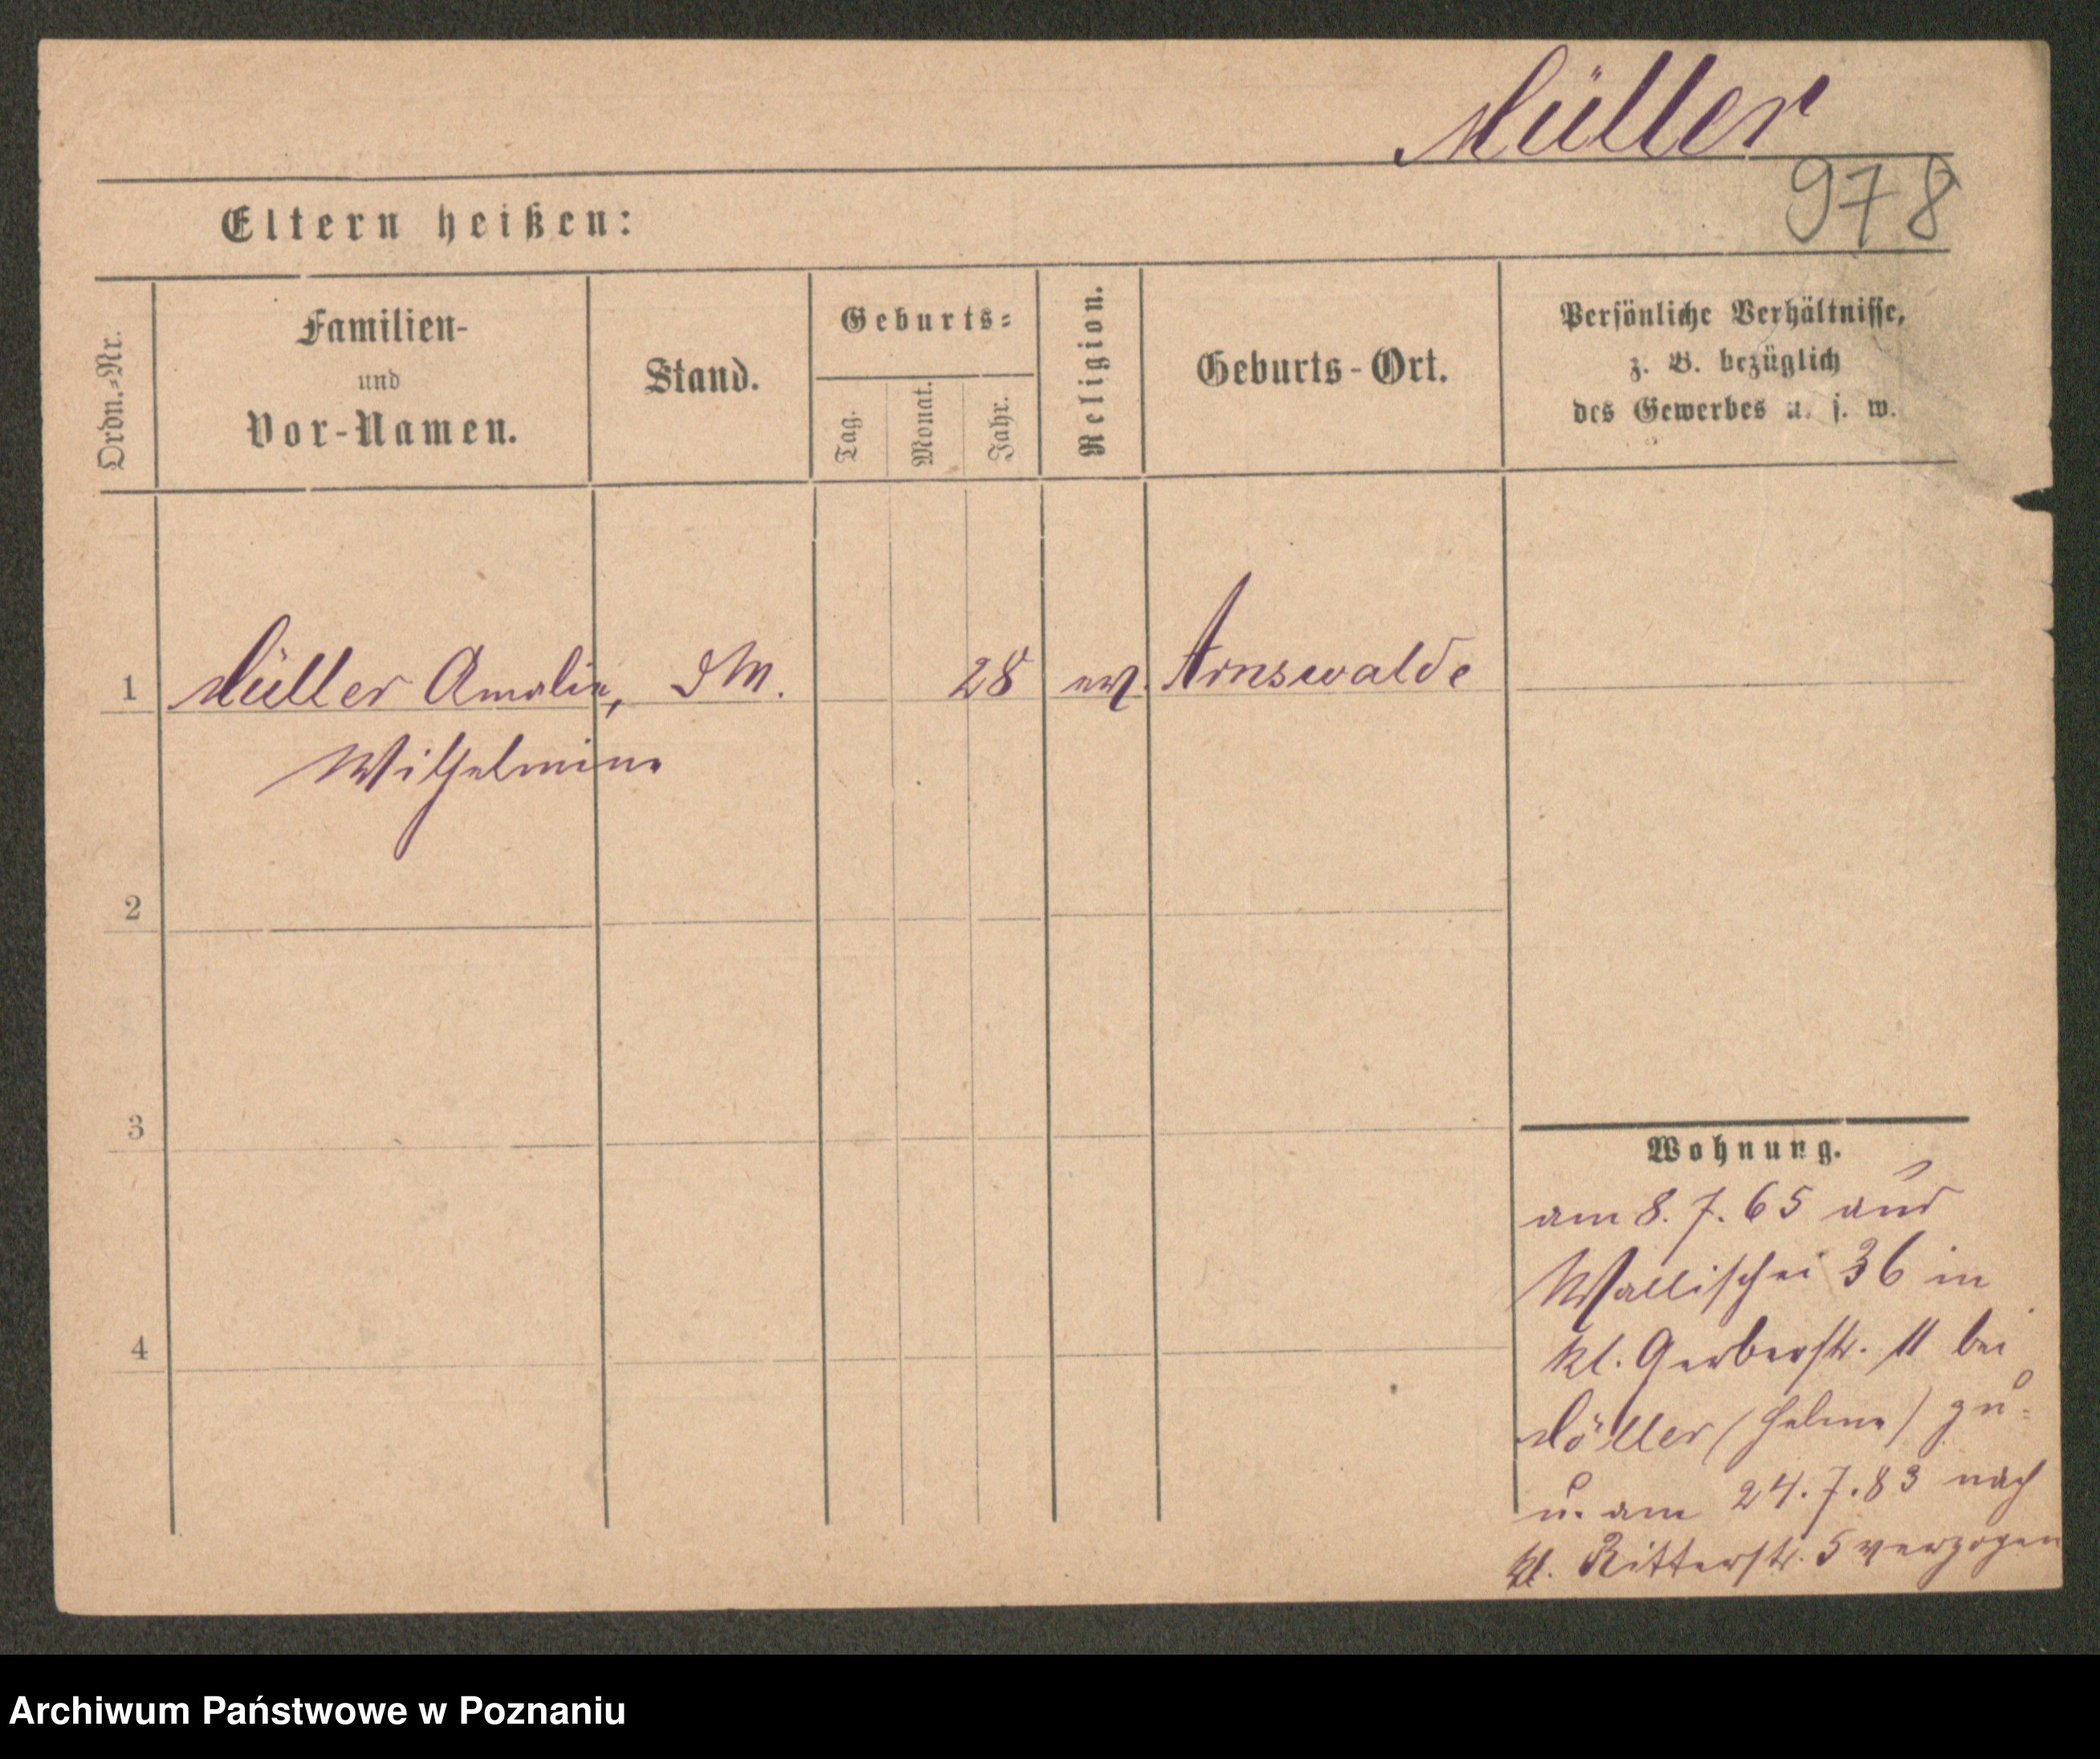 Müller
978
Eltern heißen:
Ordn.-Nr.
Familien-
und
Vor-Namen.
Stand.
Geburts-
Tag.
Monat.
Jahr.
Religion.
Geburts-Ort.
Persönliche Verhältnisse,
z. B. bezüglich
des Gewerbes u. s. w.
1 Müller Amalie, DM. 28 ev. Arnswalde
Wilhelmine
2
3
4
Wohnung.
am 8. 7. 65 aus
Wallischei 36 in
kl. Gerberstr. 11 bei
Möller zu-
u. am 24. 7. 83 nach
kl. Ritterstr. 5 verzogen
Archiwum Państwowe w Poznaniu